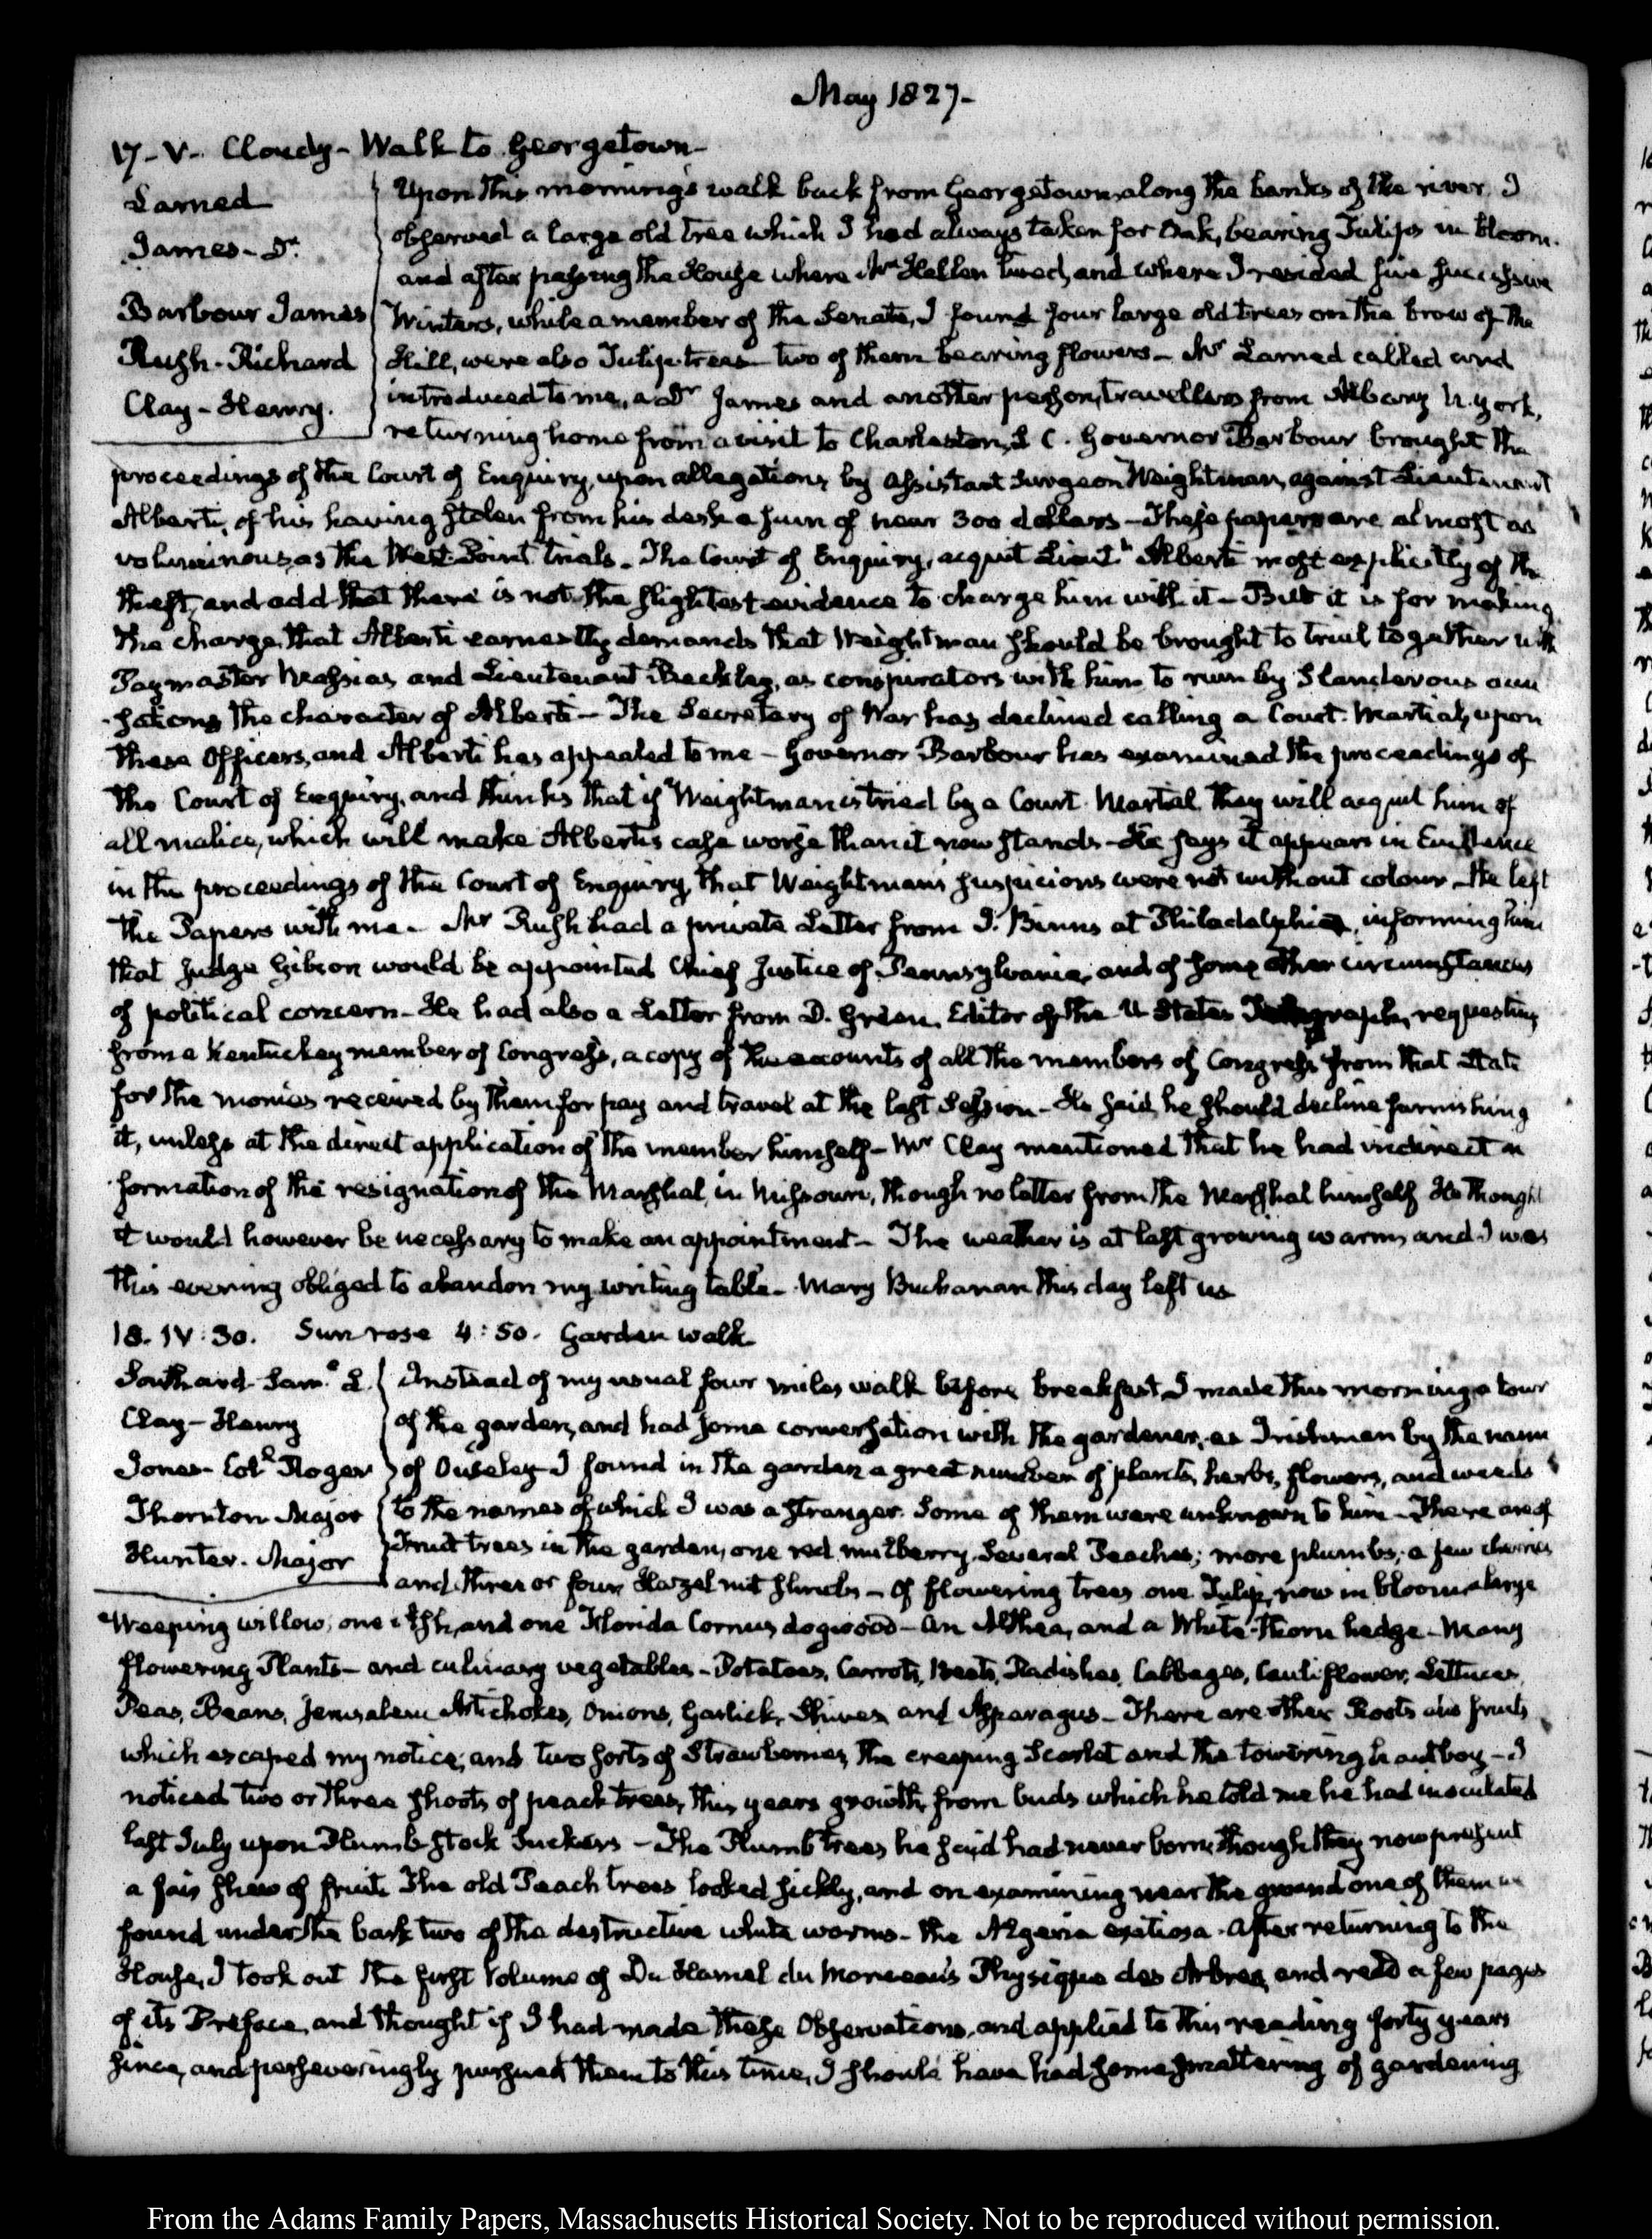 May 1827-
17- V- Cloudy- Walk to Georgetown-
Larned
James- Dr.
Barbour James
Rush- Richard
Clay- Henry.
Upon this morning's walk back from Georgetown, along the banks of the river, I
observed a large old tree which I had always taken for Oak, bearing Tulips in bloom.
and after passing the House where Mr Hellen lived, and where I resided five successive
Winters, while a member of the Senate, I found four large old trees on the brow of the
Hill, were also Tulip-trees- two of them bearing flowers- Mr Larned called and
introduced to me, a Dr James and another person, travellers from Albany N. York,
returning home from a visit to Charleston, S C. Governor Barbour brought the
proceedings of the Court of Enquiry, upon allegations by Assistant Surgeon Weightman, against Lieutenant
Alberti, of his having stolen from his desk a sum of near 300 dollars- These papers are almost as
voluminous as the West-Point trials. The Court of Enquiry, acquit Lieutt Alberti most explicitly of the
theft, and add that there is not the slightest evidence to charge him with it- But it is for making
the charge, that Alberti earnestly demands that Weightman should be brought to trial together with
Paymaster and Lieutenant as conspirators with him to ruin by slanderous accu
sations the character of Alberti- The Secretary of War has declined calling a Court-Martial, upon
these Officers, and Alberti has appealed to me- Governor Barbour has examined the proceedings of
the Court of Enquiry, and thinks that if Weightman is tried by a Court-Martial they will acquit him of
all malice, which will make Alberti's case worse than it now stands- He says it appears in Evidence
in the proceedings of the Court of Enquiry, that Weightman's suspicions were not without colour- He left
the Papers with me. Mr Rush had a private Letter from J. Binns at Philadelphia, informing him
that Judge Gibson would be appointed Chief Justice of Pennsylvania, and of some other circumstances
of political concern- He had also a Letter from D. Green, Editor of the U States Telegraph, requesting
from a Kentuckey member of Congress, a copy of the accounts of all the members of Congress from that State
for the monies received by them for pay and travel at the last Session- He said, he should decline furnishing
it, unless at the direct application of the member himself- Mr Clay mentioned that he had indirect in
formation of the resignation of the Marshal, in Missouri, though no letter from the Marshal himself He thought
it would however be necessary to make an appointment- The weather is at last growing warm, and I was
this evening obliged to abandon my writing table- Mary Buchanan this day left us
18. IV:30. Sun rose 4:50. Garden walk
Southard- Saml. L.
Clay- Henry
Jones- Coll Roger
Thornton Major
Hunter. Major
Instead of my usual four miles walk before breakfast, I made this morning a tour
of the garden, and had some conversation with the gardener, an Irishman by the name
of Ouseley- I found in the garden a great number of plants, herbs, flowers, and weeds
to the names of which I was a stranger. Some of them were unknown to him- There are of
Fruit trees in the garden, one red mulberry, Several Peaches; more plumbs; a few cherries
and three or four Hazel nut shrubs- Of flowering trees one Tulip, now in bloom, a large
Weeping willow, one Ash, and one Florida Cornus dogwood- an Althea, and a White-thorn hedge- Many
flowering Plants- and culinary vegetables- Potatoes, Carrots, Beets, Radishes, Cabbages, Cauliflower, Lettuces,
Peas, Beans, Jerusalem Artichokes, Onions, Garlick, Shives and Asparagus- There are other Roots and fruits
which escaped my notice; and two sorts of Strawberries, the creeping Scarlet and the towering hautboy- I
noticed two or three shoots of peach trees, this years growth, from buds which he told me he had inoculated
last July upon Plumb-stock suckers- The Plumb trees he said had never borne though they now present
a fair shew of fruit. The old Peach trees looked sickly, and on examining near the ground one of them we
found under the bark two of the destructive white worms- the Algeria exitiosa. After returning to the
House, I took out the first Volume of Du Hamel du Monceau's Physique des Arbres, and read a few pages
of its Preface, and thought if I had made these Observations, and applied to this reading forty years
since, and perseveringly pursued them to this time, I should have had some smattering of gardening
From the Adams Family Papers, Massachusetts Historical Society. Not to be reproduced without permission.